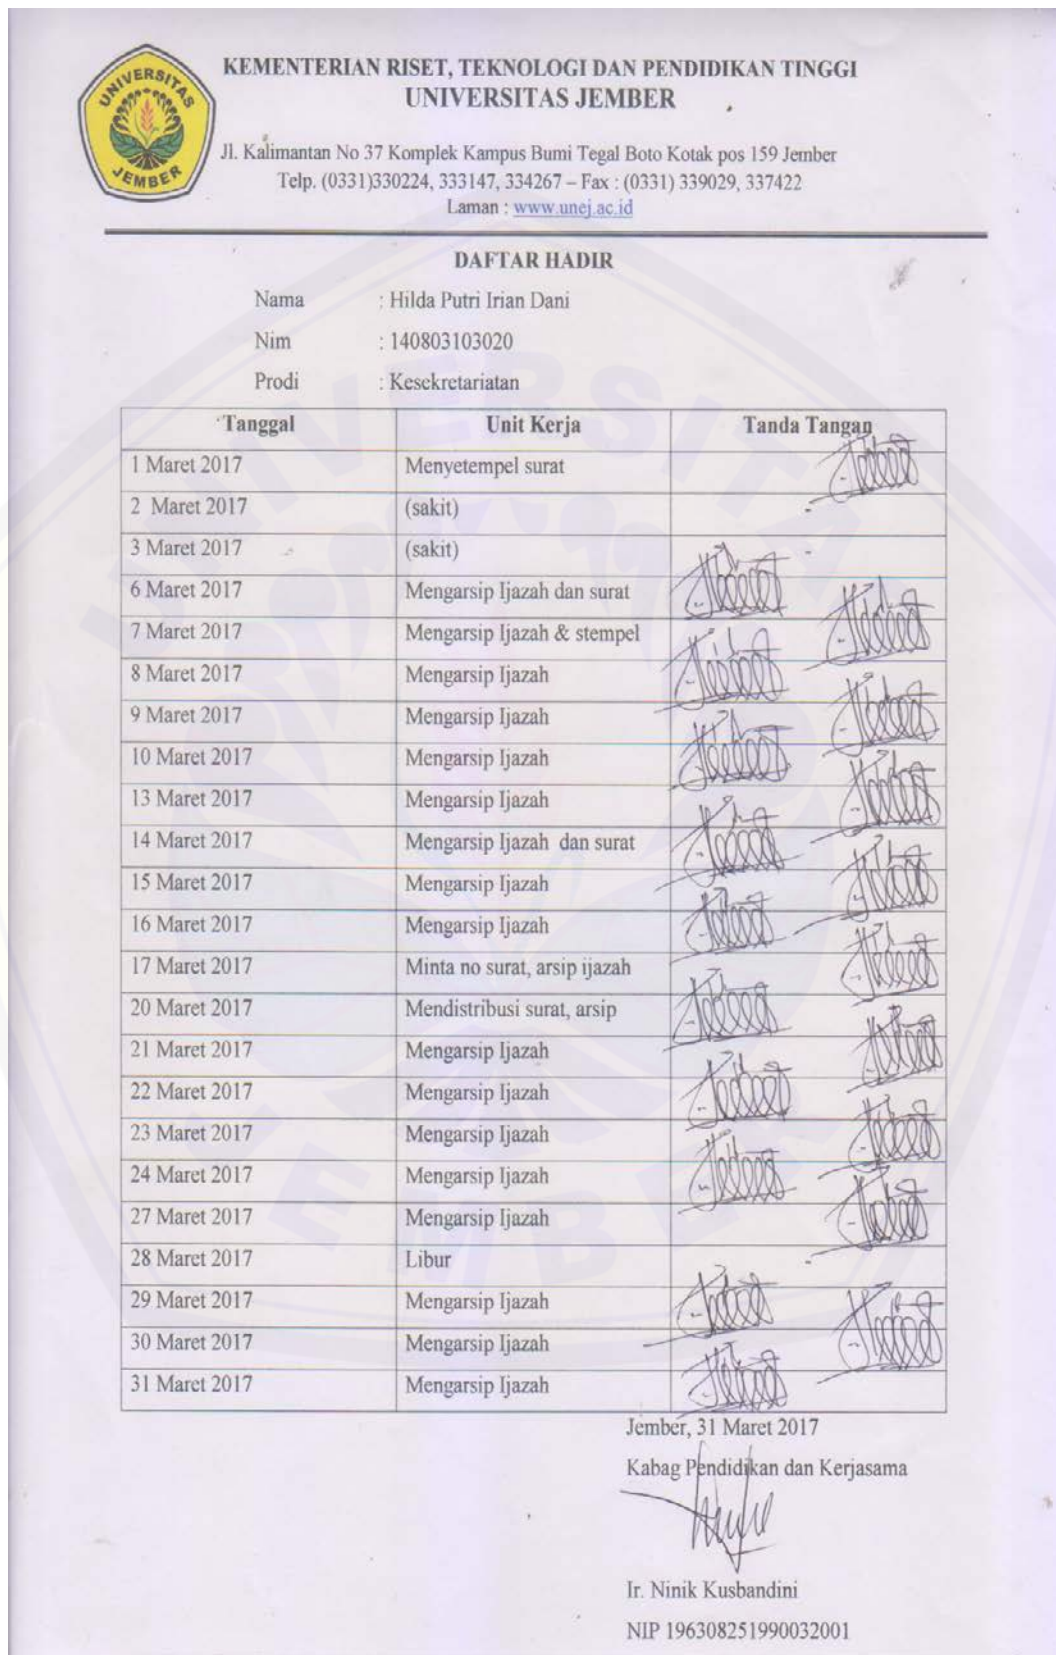 UNIVERSITAS
JEMBER
KEMENTERIAN RISET, TEKNOLOGI DAN PENDIDIKAN TINGGI
UNIVERSITAS JEMBER
Jl. Kalimantan No 37 Komplek Kampus Bumi Tegal Boto Kotak pos 159 Jember
Telp. (0331)330224, 333147, 334267 – Fax : (0331) 339029, 337422
Laman : www.unej.ac.id
DAFTAR HADIR
Nama : Hilda Putri Irian Dani
Nim : 140803103020
Prodi : Kesekretariatan
Tanggal Unit Kerja Tanda Tangan
1 Maret 2017 Menyetempel surat
2 Maret 2017 (sakit) -
3 Maret 2017 (sakit) -
6 Maret 2017 Mengarsip Ijazah dan surat
7 Maret 2017 Mengarsip Ijazah & stempel
8 Maret 2017 Mengarsip Ijazah
9 Maret 2017 Mengarsip Ijazah
10 Maret 2017 Mengarsip Ijazah
13 Maret 2017 Mengarsip Ijazah
14 Maret 2017 Mengarsip Ijazah dan surat
15 Maret 2017 Mengarsip Ijazah
16 Maret 2017 Mengarsip Ijazah
17 Maret 2017 Minta no surat, arsip ijazah
20 Maret 2017 Mendistribusi surat, arsip
21 Maret 2017 Mengarsip Ijazah
22 Maret 2017 Mengarsip Ijazah
23 Maret 2017 Mengarsip Ijazah
24 Maret 2017 Mengarsip Ijazah
27 Maret 2017 Mengarsip Ijazah
28 Maret 2017 Libur -
29 Maret 2017 Mengarsip Ijazah
30 Maret 2017 Mengarsip Ijazah
31 Maret 2017 Mengarsip Ijazah
Jember, 31 Maret 2017
Kabag Pendidikan dan Kerjasama
Ir. Ninik Kusbandini
NIP 196308251990032001